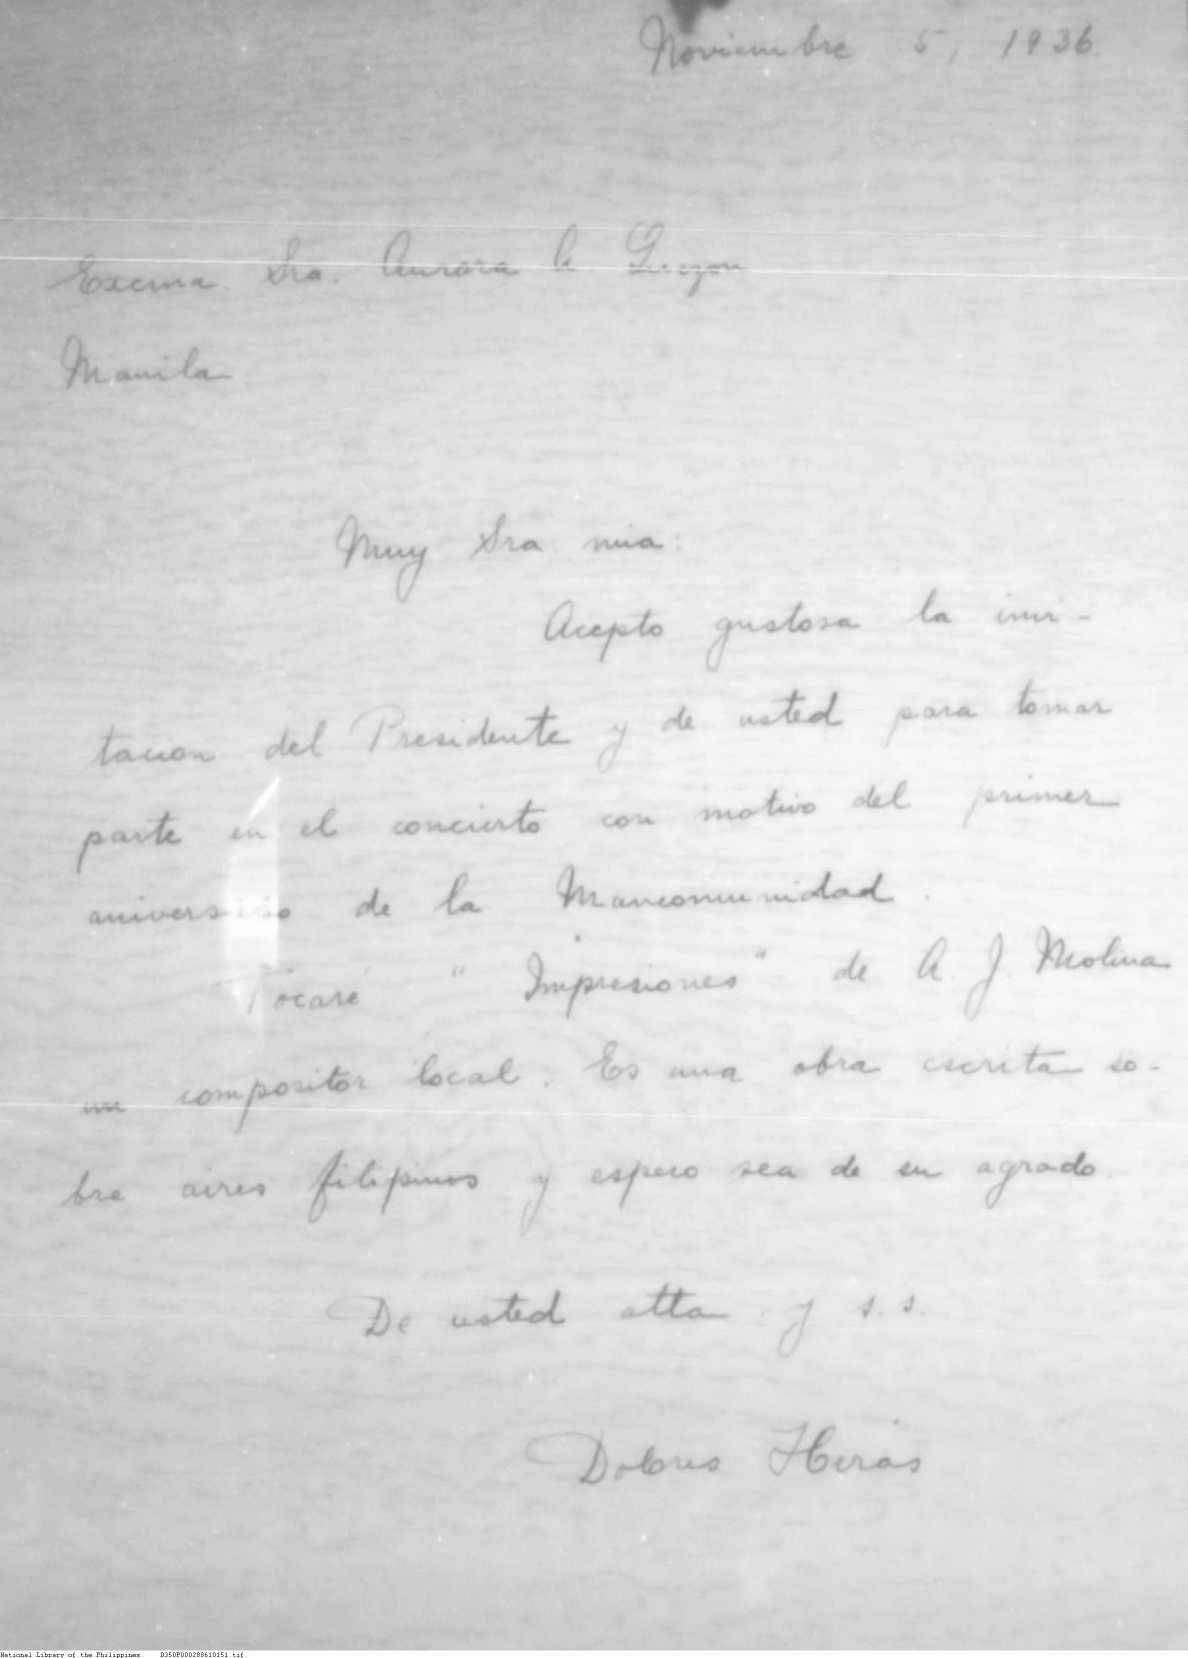 Noviembre 5, 1936.
Excma. Sra. Aurora A. Quezon
Manila
Muy Sra. mia:
Acepto gustosa la invi-
tacion del Presidente y de usted para tomar
parte en el concierto con motivo del primer
aniversario de la Mancomunidad.
Tocaré "Impresiones" de A. J. Molina
un compositor local. Es una obra escrita so-
bre aires filipinos y espero sea de su agrado.
De usted atta. y s.s.
Dolores Heras
National Library of the Philippines D350P000288610151.tif